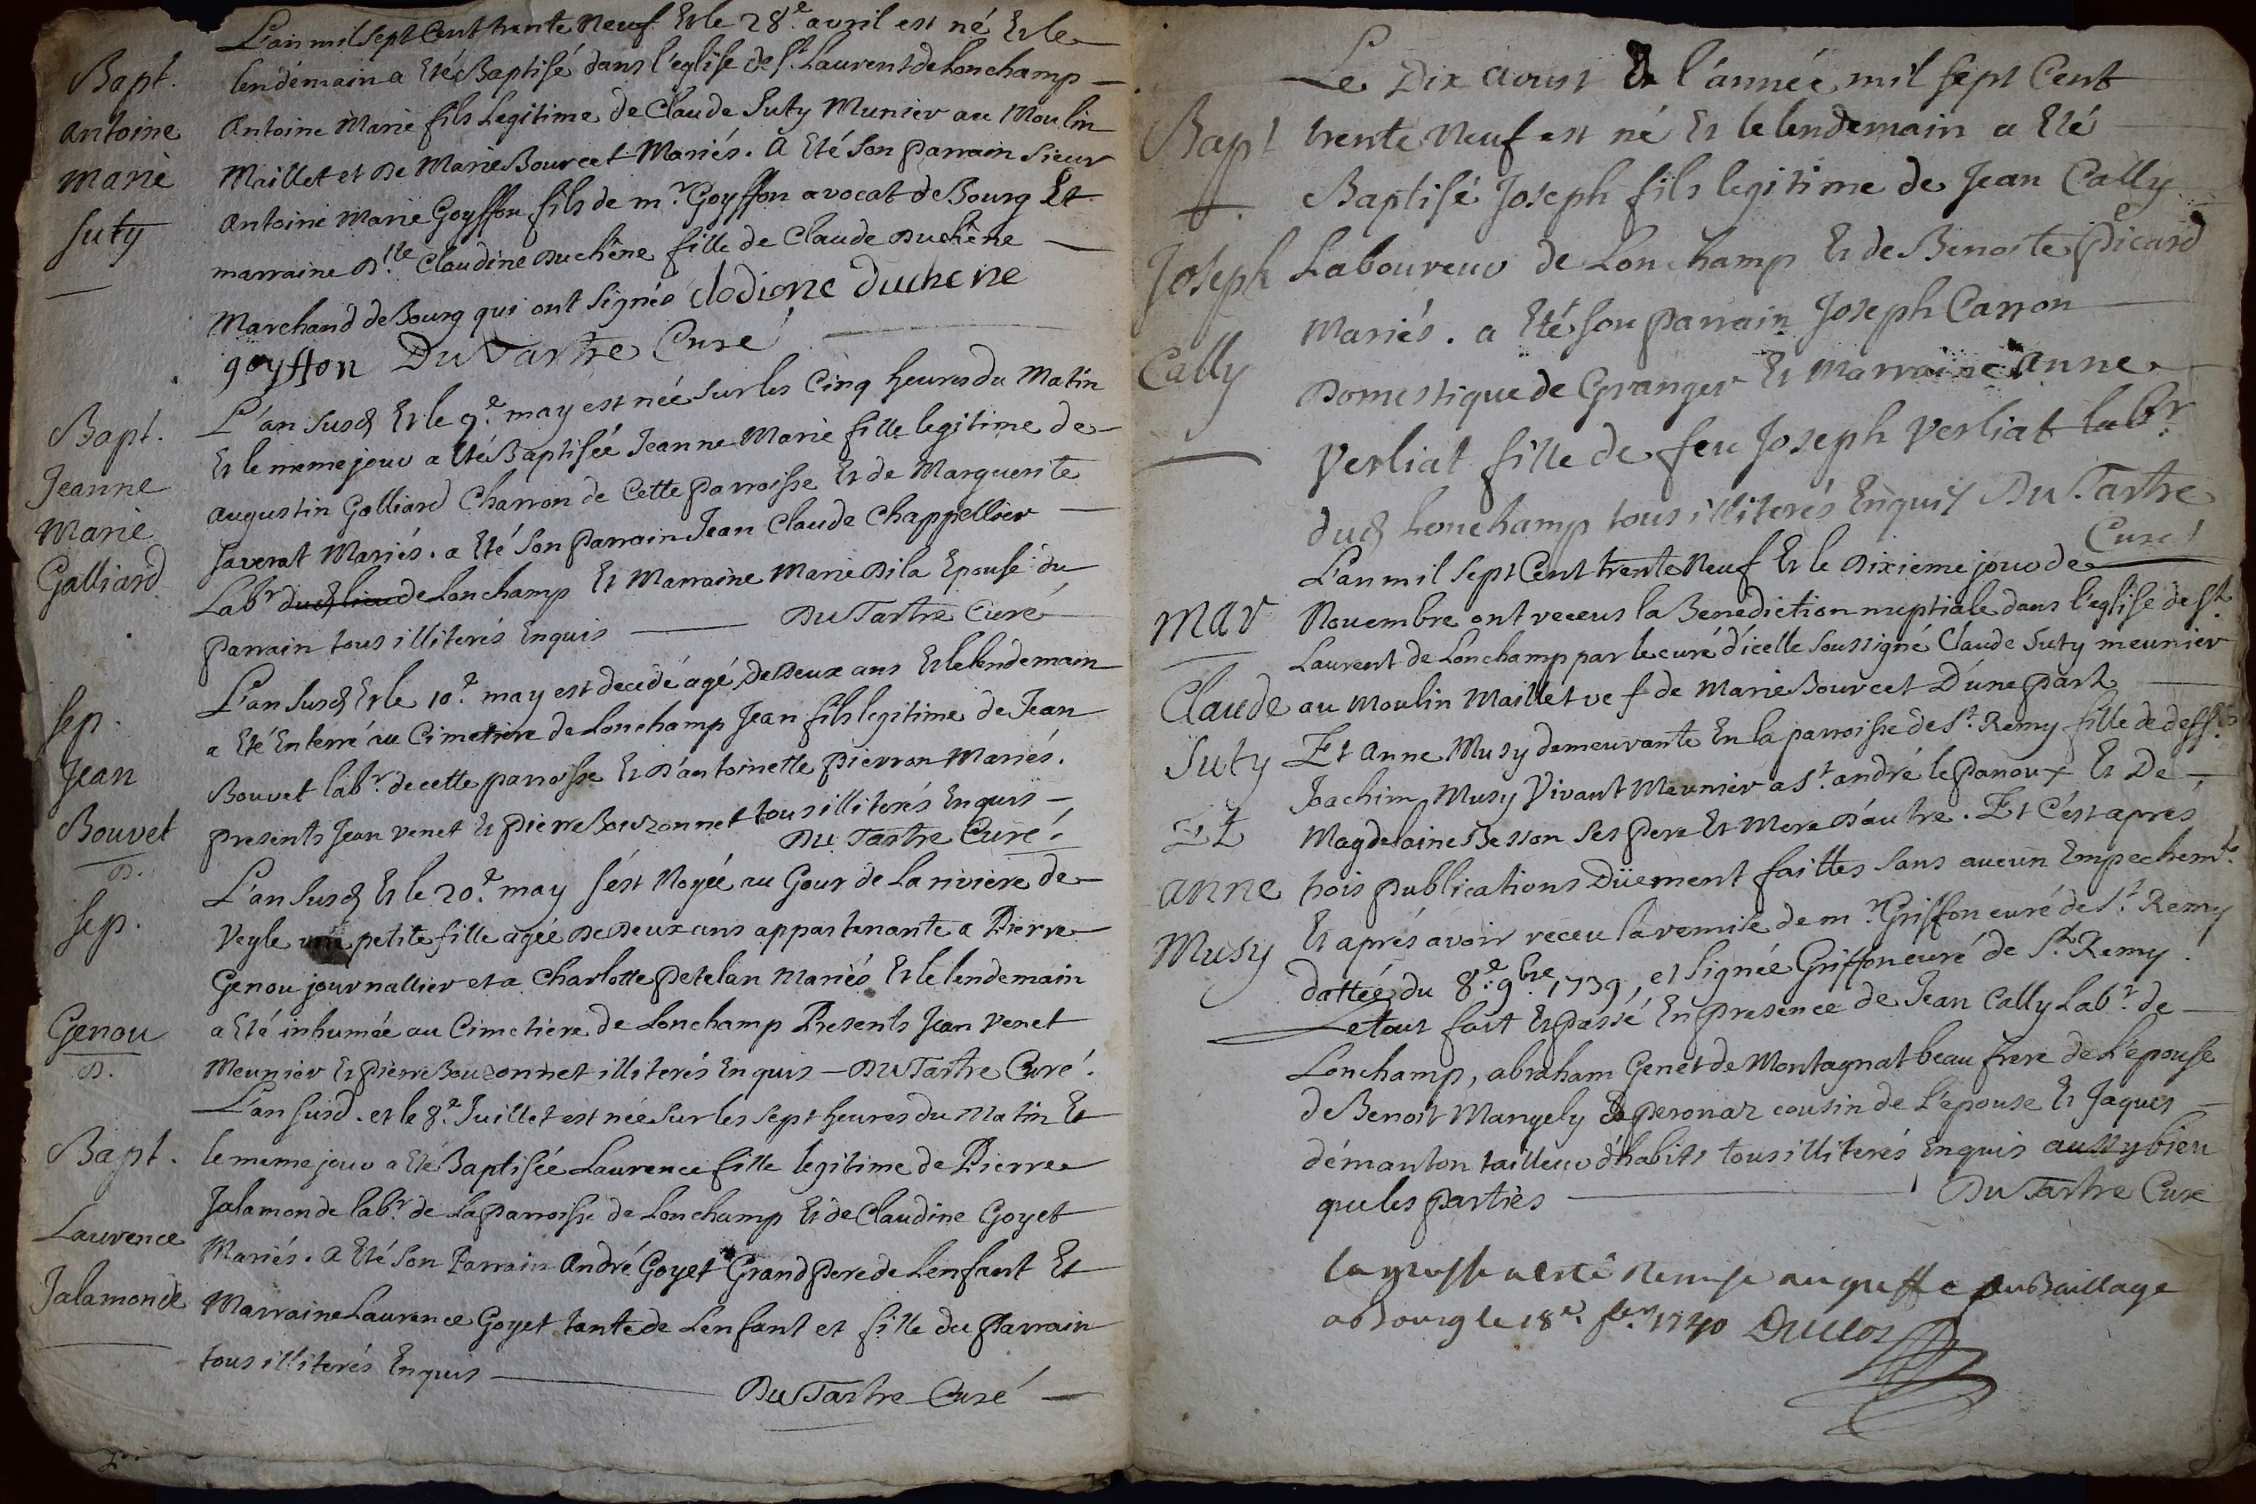 L'an mil sept Cent trente Neuf Et le 28e avril est né Et le
Bapt. lendemain a Eté Baptisé dans l'eglise de St. Laurent de Lonchamp
Antoine Antoine Marie fils Legitime de Claude Suty Munier au Moulin
Marie Maillet et De Marie Bourcet Mariés. A Eté son Parrain Sieur
Suty Antoine Marie Goyffon fils de mr. Goyffon avocat de Bourg Et
marraine Dlle. Claudine Duchêne fille de Claude Duchêne
Marchand de Bourg qui ont signés clodione duchene
goyffon DuTartre Curé
Bapt. L'an susd Et le 9e. may est née sur les Cinq heures du Matin
Jeanne Et le meme jour a Eté Baptisée Jeanne Marie fille legitime de
Marie augustin Galliard Charron de Cette Parroisse Et de Marguerite
Galliard Saverat Mariés. a Eté son Parrain Jean Claude Chappellier
Labr dud lieu de Lonchamp Et Marraine Marie Dila Epouse du
Parrain tous illiterés Enquis DuTartre Curé
Sep. L'an susd Et le 10e. may est decedé agé De Deux ans Et le lendemain
Jean a Eté Enterré au Cimetiere de Lonchamp Jean fils legitime de Jean
Bouvet Bouvet labr. de cette parroisse Et D'antoinette Pierron Mariés.
D. presents Jean Venet Et Pierre Bouzonnet tous illiterés Enquis
DuTartre Curé.
Sep. L'an susd Et le 20e. may s'est Noyée au Gour de La riviere de
Veyle une petite fille agée De Deux ans appartenante a Pierre
Genou Genou journallier et a Charlotte Petelan Mariés Et le lendemain
D. a Eté inhumée au Cimetiere de Lonchamp Presents Jean Venet
Meunier Et Pierre Bouzonnet illiterés Enquis DuTartre Curé.
L'an susd. et le 8e. Juillet est née sur les sept heures du Matin Et
Bapt. le meme jour a Eté Baptisée Laurence fille legitime de Pierre
Laurence Jalamonde labr. de La Parroisse de Lonchamp Et de Claudine Goyet
Jalamonde Mariés. A Eté son Parrain André Goyet Grand Pere de Lenfant Et
Marraine Laurence Goyet tante de Lenfant et fille du Parrain
tous illiterés Enquis DuTartre Curé
Le Dix Aoust Et l'année mil sept Cent
Bapt trente Neuf est né Et le lendemain a Eté
Baptisé Joseph fils legitime de Jean Cally
Joseph Laboureur de Lonchamp Et de Benoite Picard
Cally Mariés. a Eté son Parrain Joseph Carron
Domestique de Granger Et Marraine Anne
Verliat fille de feu Joseph Verliat labr.
dud Lonchamp tous illiterés Enquis DuTartre
Curé
L'an mil sept Cent trente Neuf Et le Dixieme jour de
Mar Novembre ont receus la Benediction nuptiale dans l'eglise de St.
Laurent de Lonchamp par le curé d'icelle soussigné Claude Suty meunier
Claude au Moulin Maillet vef de Marie Bourcet D'une part
Suty Et Anne Musy demeurante En la parroisse de St. Remy fille de deffts
Joachim Musy Vivant Meunier a St. andré le Panoux Et De
Et Magdelaine Besson ses Pere Et Mere D'autre. Et C'est aprés
Anne trois Publications Düement faittes sans aucun Empechemt.
Musy Et aprés avoir receu la remise de mr. Griffon curé de St. Remy
dattée du 8e. 9bre 1739, et signée Griffon curé de St. Remy.
Le tout fait Et Passé En presence de Jean Cally Labr. de
Lonchamp, abraham Genet de Montagnat beau frere de L'epouse
de Benoit Mangely Peronaz cousin de l'epouse Et Jaques
démanton tailleur d'habits tous illiterés Enquis aussy bien
que les Parties DuTartre Curé
la grosse a esté remise au greffe du Baillage
a Bourg le 18e. 1740 Duclos